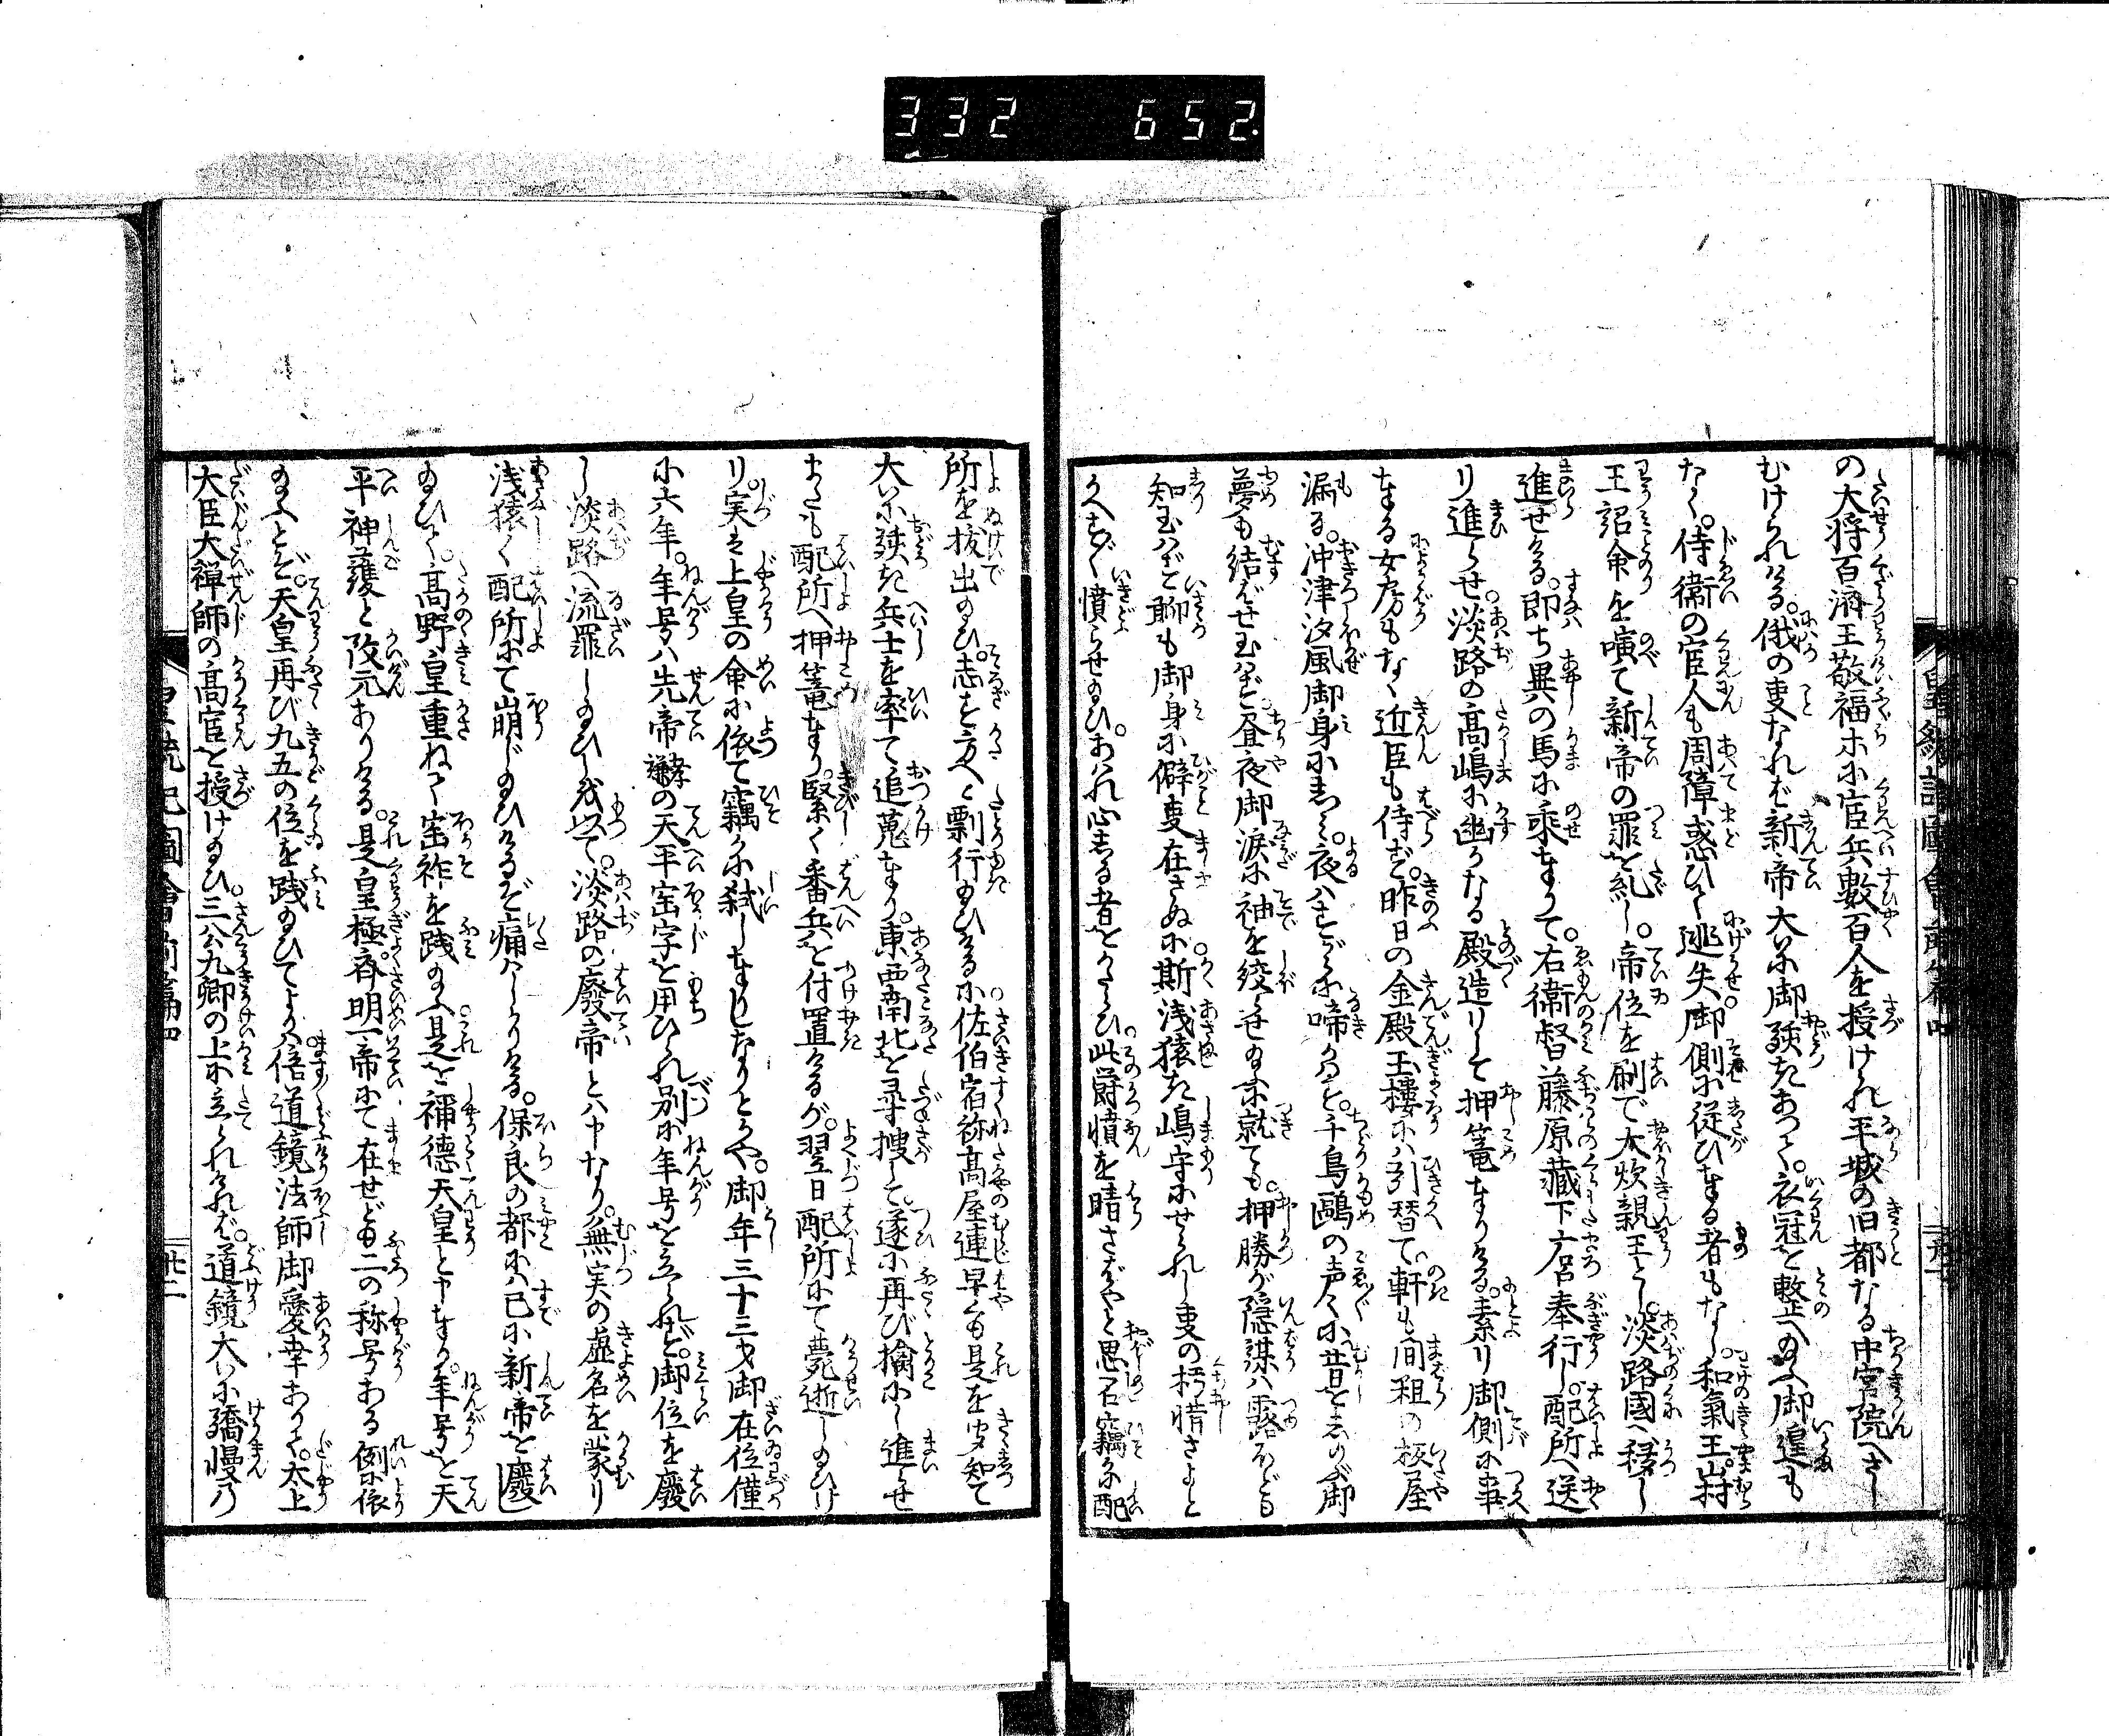 332 652
の大将百済王敬福ホに宦兵數百人を授けられ平城の旧都なる中宮院へさし
むけられける。俄の叓なれば新帝大いに御駭きあつて。衣冠を整へ給ふ御遑も
なく。侍衞の宦人も周障惑ひて逃失御側に従ひ奉る者もなし。和氣王山村
王詔命を演て新帝の罪を糺し。帝位を刷で大炊親王とし。淡路國へ移し
進せける。即ち異の馬に乘奉りて。右衞督藤原藏下麿奉行し。配所へ送
り進らせ。淡路の高嶋に幽かなる殿造りして押篭奉りける。素り御側に事
奉る女房もなく近臣も侍ず。昨日の金殿玉樓には引替て。軒も間粗の板屋
漏る。沖津汐風御身にしみて。夜はすがらに啼かはす。千鳥鷗の声々に。昔をしのぶ御
夢も結ばせ玉はず。昼夜御涙に袖を絞らせ給ふに就ても。押勝が隠謀は露ほども
知玉はず聊も御身に僻叓在さぬに斯浅猿き嶋守にせられし叓の朽惜さよと
うへすがへす憤らせ給ひ。あはれ心ある者をかたらひ。此欝憤を晴さばやと思召竊に配
所を抜出給ひ。志す方へと剽行給ひけるに。佐伯宿祢高屋連早くも是を聞知て
大いに駭き兵士を率て追蒐奉り。東西南北を尋搜して。遂に再び擒にし進らせ
またも配所へ押篭奉り。緊く番兵を付置けるが。翌日配所にて薨逝し給ひけ
り。実は上皇の命に依て竊かに弑し奉りしなりとかや。御年三十三才御在位僅
に六年。年号は先帝孝謙の天平宝字を用ひられ別に年号を立られず。御位を廢
し淡路へ流罪し給ひしを以て。淡路の廢帝とは申なり。無実の虚名を蒙り
浅猿く配所にて崩じ給ひけるぞ痛はしかりける。保良の都には已に新帝を廢し
給ひて。高野皇重ねて宝祚を践給ふ。是を稱德天皇と申奉り。年号を天
平神護と改元ありける。是皇極。斉明一帝にて在せども二の称号ある例に依
給ふとぞ。天皇再び九五の位を践給ひてよりは倍道鏡法師御愛幸ありて。太上
大臣大禅師の高宦を授け給ひ。三公九卿の上に立られければ。道鏡大いに驕慢の
皇統記圖會前篇四
廿二